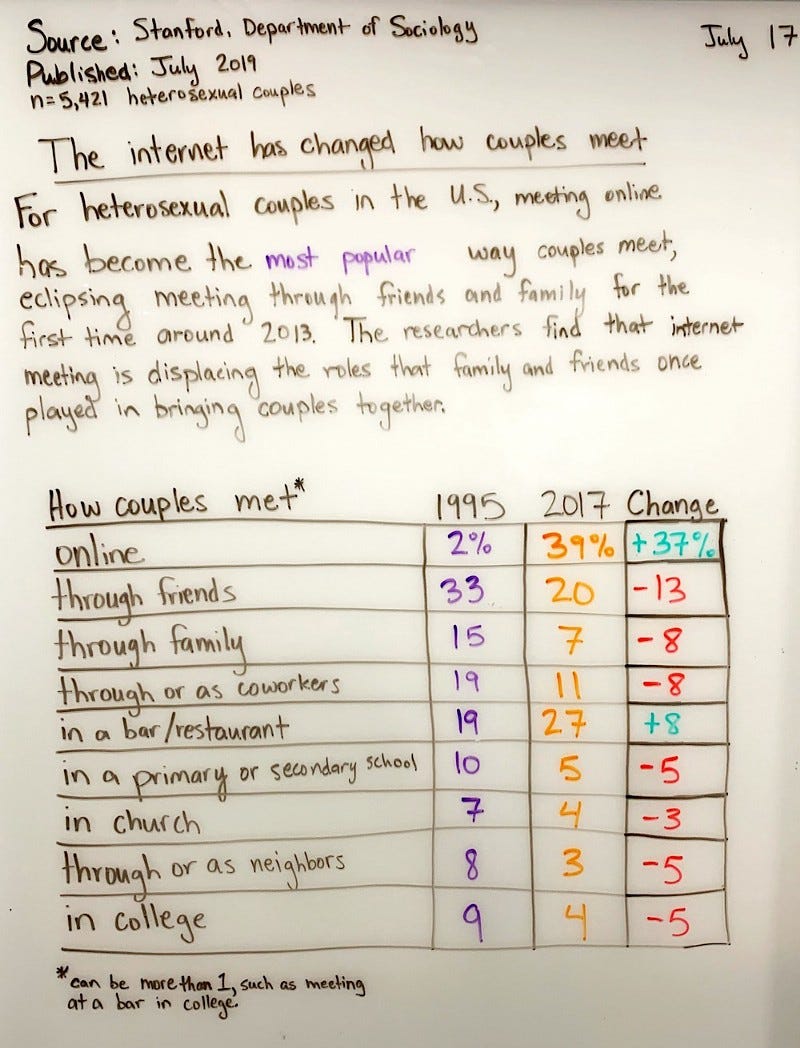 Source: Stanford, Department of Sociology
July 17
Published: July 2019
n=5,421 heterosexual couples
The internet has changed how couples meet
For heterosexual couples in the U.S., meeting online
has become the most popular way couples meet,
eclipsing meeting through friends and family for the
first time around 2013. The researchers find that internet
meeting is displacing the roles that family and friends once
played in bringing couples together.
How couples met* 1995 2017 Change
online 2% 39% +37%
through friends 33 20 -13
through family 15 7 -8
through or as coworkers 19 11 -8
in a bar/restaurant 19 27 +8
in a primary or secondary school 10 5 -5
in church 7 4 -3
through or as neighbors 8 3 -5
in college 9 4 -5
*can be more than 1, such as meeting
at a bar in college.